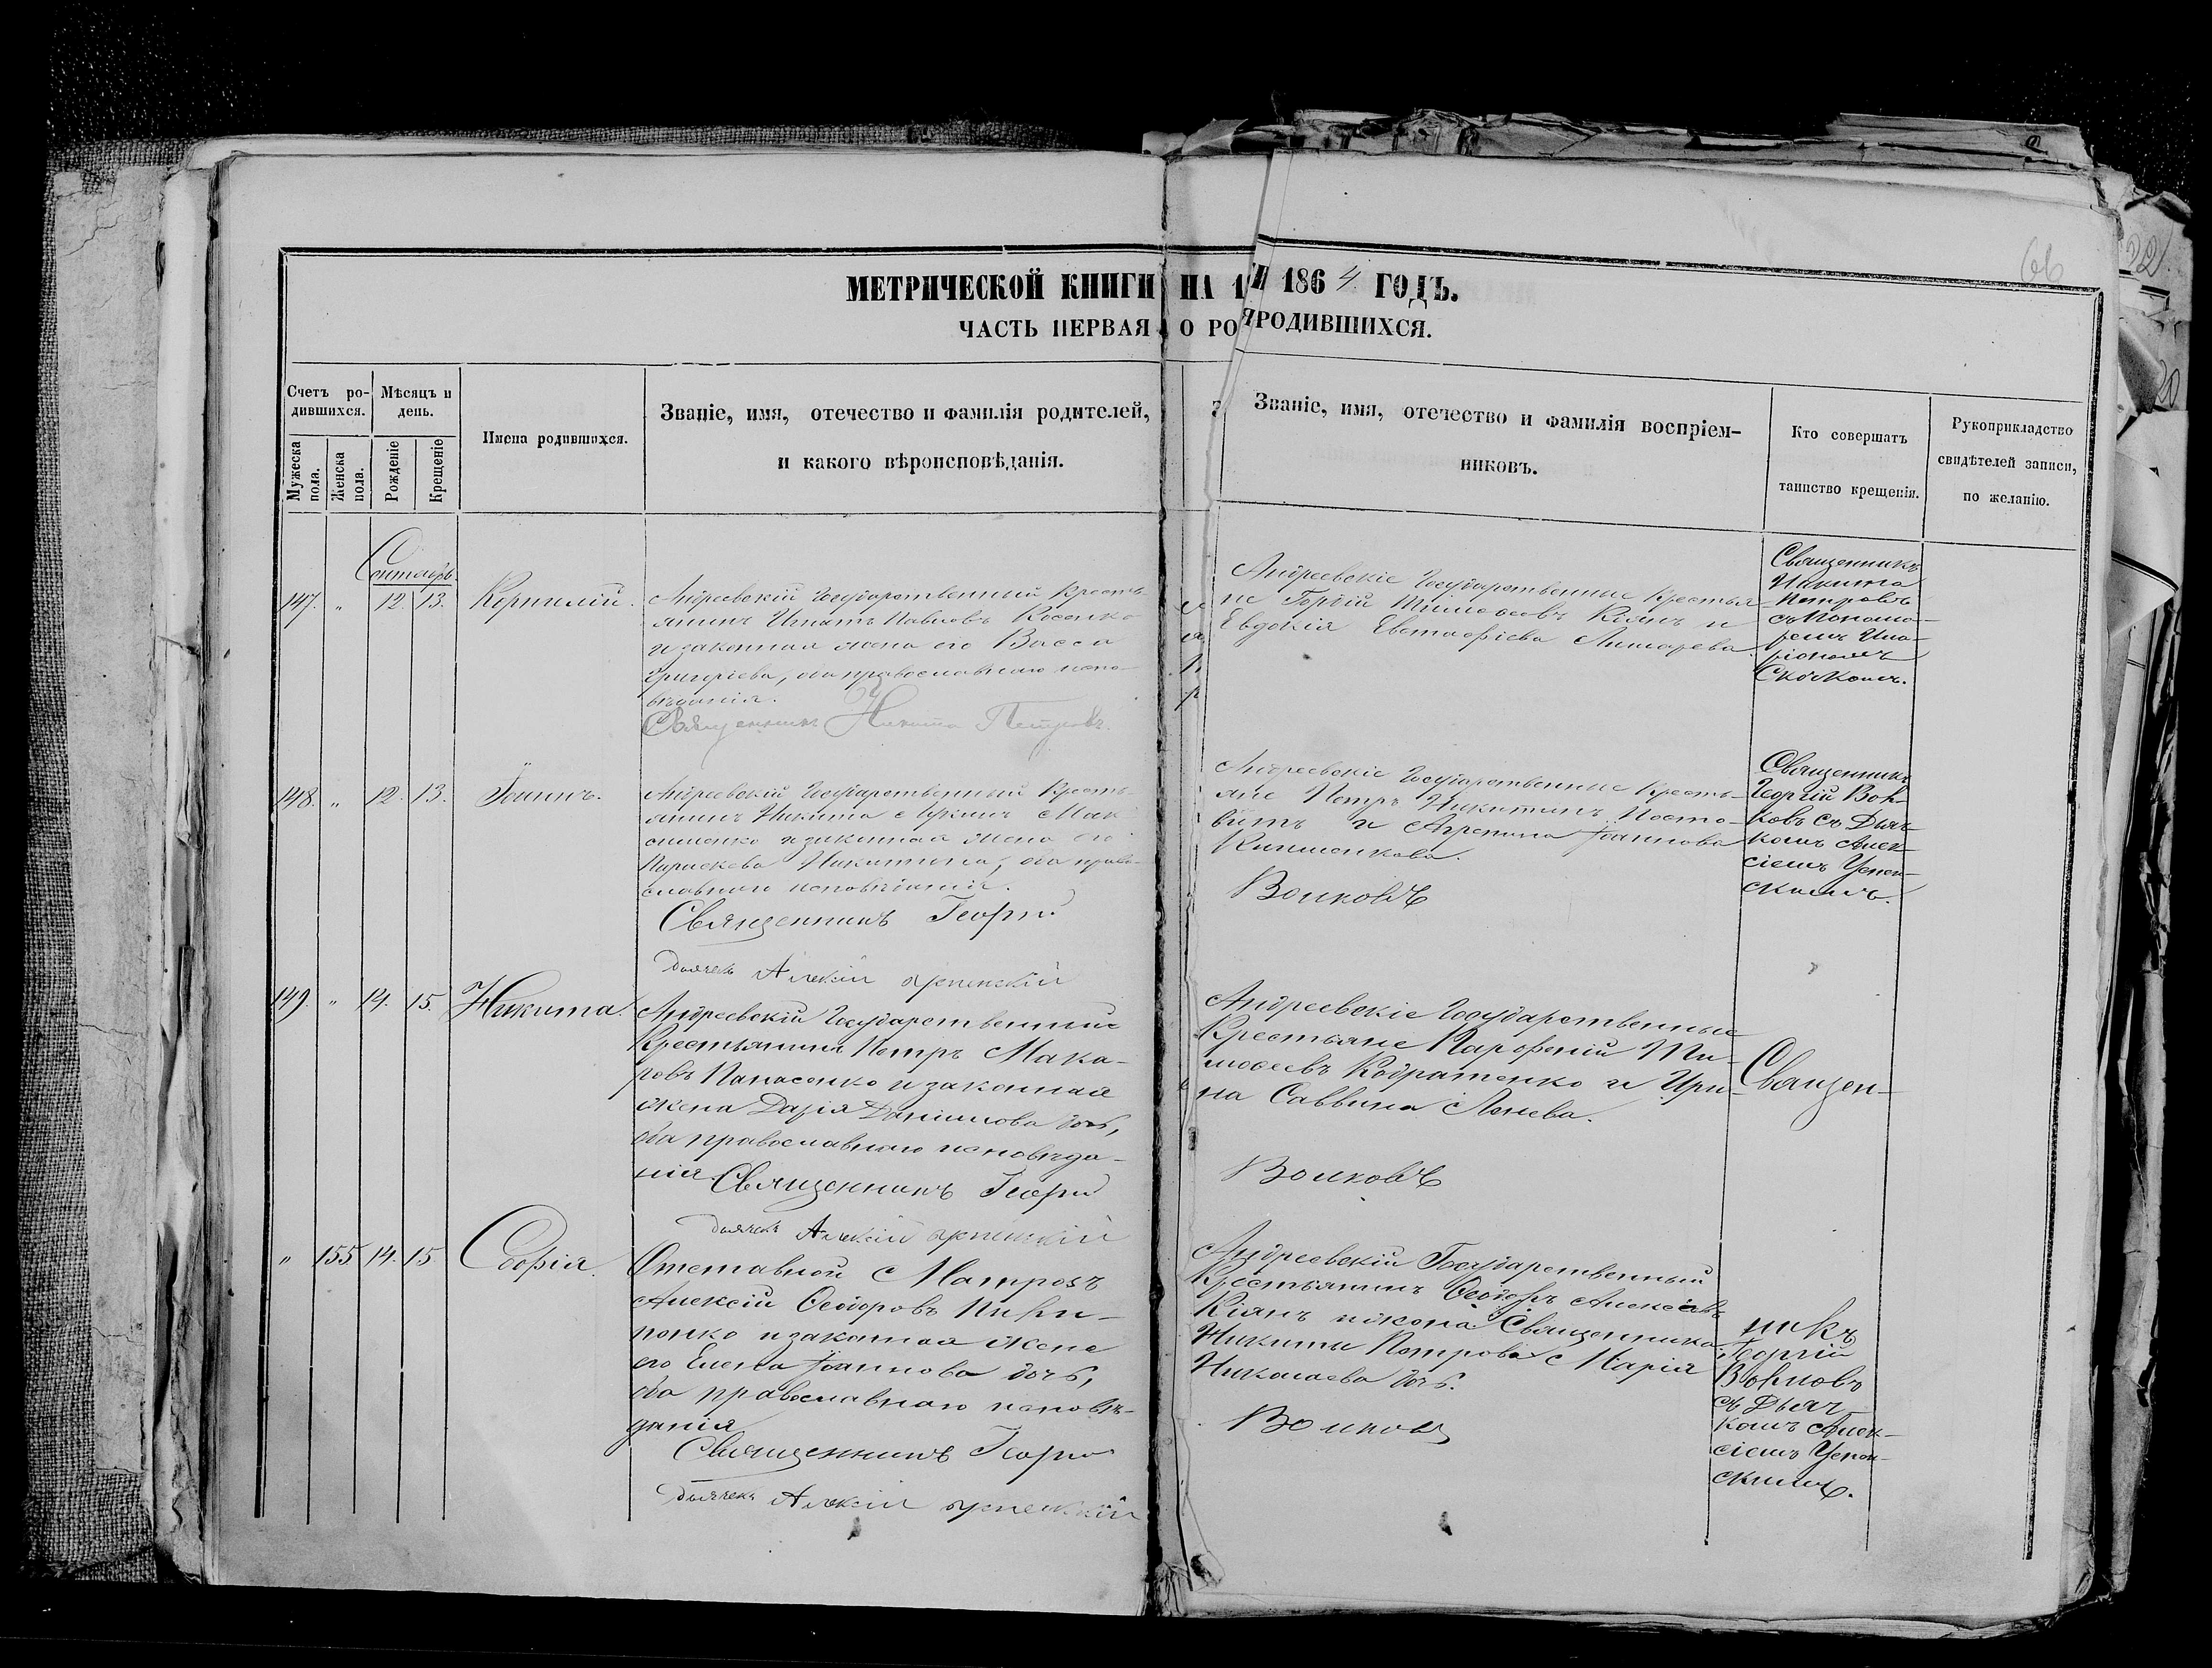 66
22
20
МЕТРИЧЕСКОЙ КНИГИ НА 1 И 1864 ГОДЪ.
ЧАСТЬ ПЕРВАЯ О РО РОДИВШИХСЯ.
Счетъ ро-
дившихся.
Мѣсяцъ и
день.
Мужеска
пола.
Женска
пола.
Рожденіе
Крещеніе
Имена родившихся.
Званіе, имя, отечество и фамилія родителей,
и какого вѣроисповѣданія.
Званіе, имя, отечество и фамилія воспріем-
никовъ.
Кто совершалъ
таинство крещенія.
Рукоприкладство
свидѣтелей записи,
по желанію.
Сентябрь.
147. " 12. 13. Корнилій.
Андреевскій Государственный Кресть-
янинъ Игнатъ Павловъ Косенко
и законная жена его Васса
Григоріева, оба православнаго испо-
вѣданія.
Священникъ Никита Петровъ.
Андреевскіе Государственные Крестья-
не Горгій Тимоѳеевъ Кіянъ и
Евдокія Евстафіева
Священникъ
Никита
Петровъ
съ Понома-
ремъ
148. " 12. 13. Іоаннъ.
Андреевскій Государственный Кресть-
янинъ Никита Лукинъ Мак-
сименко и законная жена его
Параскева Никитина, оба право-
славнаго исповѣданія.
Священникъ Георгій
Дьячекъ Алексій Успенскій
Андреевскіе Государственные Кресть-
яне Петръ Никитинъ
и Агрепина Іоаннова
Волковъ
Священникъ
Георгій Вол-
ковъ съ Дьяч-
комъ Алек-
сіемъ Успен-
скимъ.
149. " 14. 15. Никита.
Андреевскій Государственный
Крестьянинъ Петръ Мака-
ровъ Панасенко и законная
жена Дарія Даніилова дочь,
оба православнаго исповѣда-
нія. Священникъ Георгій
Дьячекъ Алексій Успенскій
Андреевскіе Государственные
Крестьяне Парѳеній Ти-
моѳеевъ Кодратенко и Ири-
на Саввина Ленева.
Волковъ
Священ-
" 155 14. 15. Софія.
Отставной Матрозъ
Алексій Ѳеодоровъ
и законная жена
его Елена Іоаннова дочь,
оба православнаго исповѣ-
данія
Священникъ Георгій
Дьячекъ Алексій Успенскій
Андреевскій Государственный
Крестьянинъ Ѳеодоръ Алексіевъ
Кіянъ и жена Священника
Никиты Петрова Марія
Николаева дочь.
Волковъ
никъ
Георгій
Волковъ
съ Дьяч-
комъ Алек-
сіемъ Успен-
скимъ.